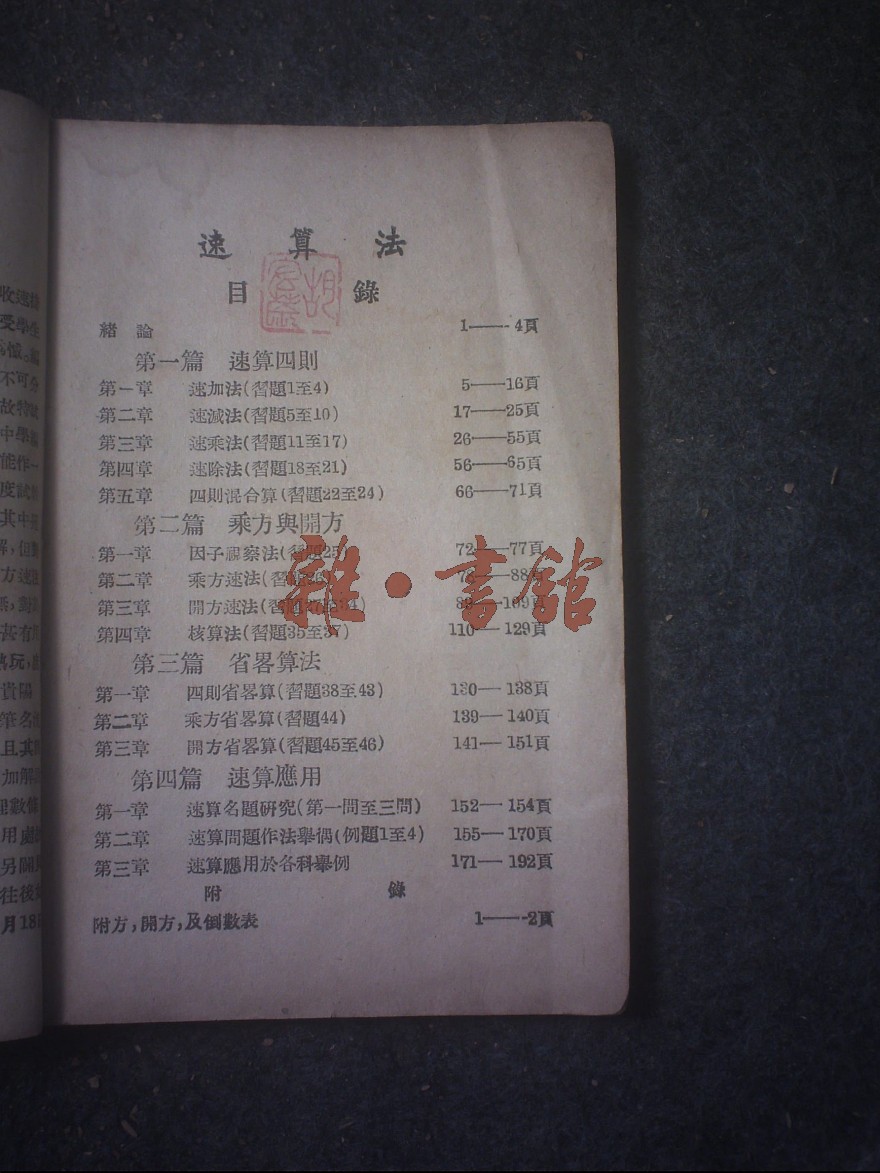 收
受學生
不可分
故特
中學
能作一
度試
其中
方速
甚有
貴陽
筆名
且其
加解
用
另闢
往後
月18
速算法
目錄
緒論 1——4頁
第一篇 速算四則
第一章 速加法(習題1至4) 5——16頁
第二章 速減法(習題5至10) 17——25頁
第三章 速乘法(習題11至17) 26——55頁
第四章 速除法(習題18至21) 56——65頁
第五章 四則混合算(習題22至24) 66——71頁
第二篇 乘方與開方
第一章 因子視察法(習題25) 72——77頁
第二章 乘方速法(習題26) 78——88頁
第三章 開方速法(習題27至34) 89——109頁
第四章 核算法(習題35至37) 110—129頁
第三篇 省畧算法
第一章 四則省畧算(習題38至43) 130—138頁
第二章 乘方省畧算(習題44) 139—140頁
第三章 開方省畧算(習題45至46) 141—151頁
第四篇 速算應用
第一章 速算名題研究(第一問至三問) 152—154頁
第二章 速算問題作法舉偶(例題1至4) 155—170頁
第三章 速算應用於各科舉例 171—192頁
附錄
附方,開方,及倒數表 1——2頁
雜·書館